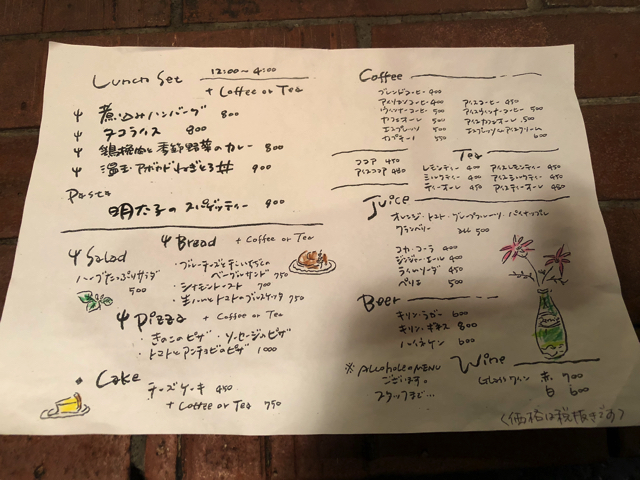 Lunch Set 12:00〜4:00
+ Coffee or Tea
煮込みハンバーグ 800
タコライス 800
鶏挽肉と季節野菜のカレー 800
温玉・アボカドねぎとろ丼 900
Pasta
明太子のスパゲッティー 900
Salad
ハーブたっぷりサラダ
500
Bread + Coffee or Tea
・ブルーチーズと
ベーグルサンド 750
・シナモントースト 700
・生ハムとトマトのブルスケッタ 750
Pizza + Coffee or Tea
・きのこのピザ ・ソーセージのピザ
・トマトとアンチョビのピザ 1000
Cake
チーズケーキ 450
+ Coffee or Tea 750
Coffee
ブレンドコーヒー 400
アメリカンコーヒー 400 アイスコーヒー 450
ウィンナーコーヒー 500 アイスウィンナーコーヒー 500
カフェオーレ 500 アイスカフェオーレ 500
エスプレッソ 500 エスプレッソ アイスクリーム
カプチーノ 550 600
ココア 450
アイスココア 480
Tea
レモンティー 400 アイスレモンティー 450
ミルクティー 400 アイスミルクティー 450
ティーオーレ 450 アイスティーオーレ 480
Juice
オレンジ・トマト・グレープフルーツ・パイナップル
クランベリー 500
コカ・コーラ 400
ジンジャーエール 400
ライムソーダ 450
ペリエ 500
Beer
キリン・ラガー 600
キリン・ギネス 800
ハイネケン 600
※ Alcohol MENU
ございます。
スタッフまで…
Wine
Glassワイン 赤 700
白 600
〈価格は税抜きです〉